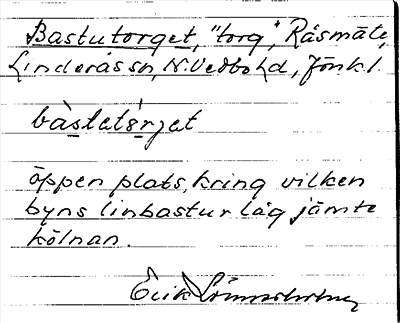 Bastutorget, "torg", Råsmåte,
Linderås sn, N. Vedbo hd, Jönk. l.
bàstatɷrjat
öppen plats, kring vilken
byns linbastur låg jämte
kölnan.
Erik